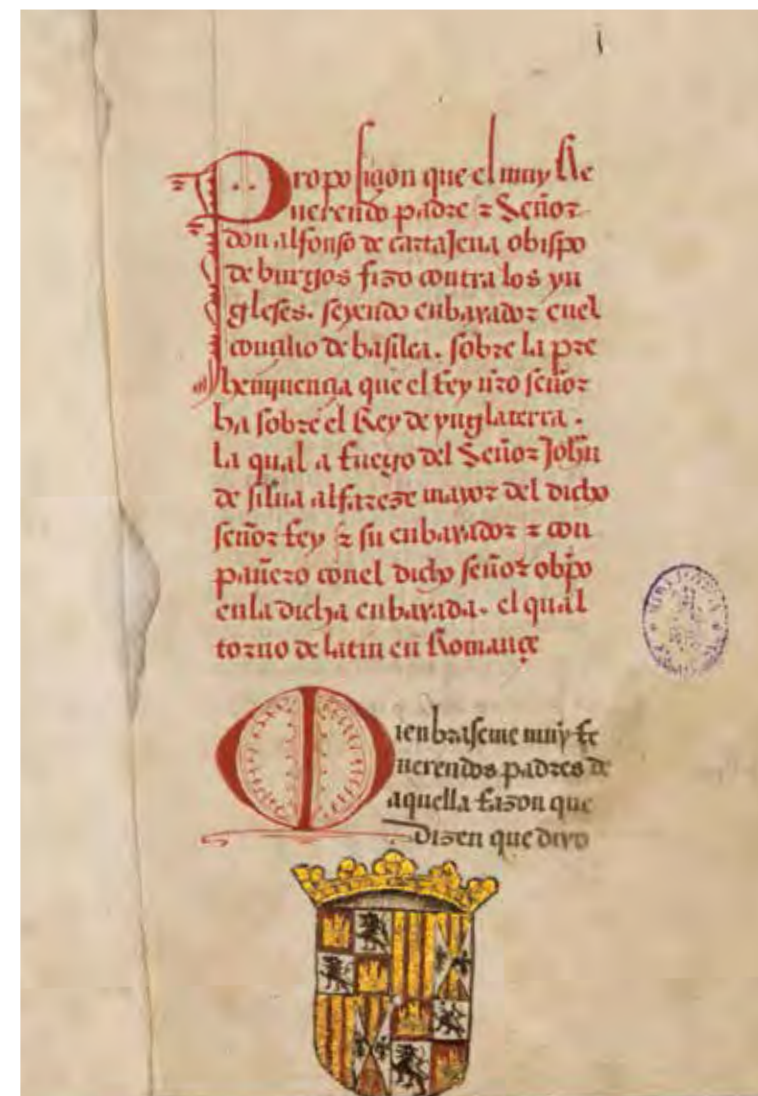 j
Proposiçion que el muy Re
uerendo padre ⁊ Señor
don alfonso de cartajena obispo
de burgos fizo contra los yn
gleses. seyendo enbaxador enel
conçilio de basilea. sobre la pre
heminençia que el Rey nr̃o señor
ha sobre el Rey de ynglaterra.
la qual a Ruego del Señor Joh̃n
de silua alfareze mayor del dicho
señor Rey ⁊ su enbaxador ⁊ con
pañero conel dicho señor ob̃po
enla dicha enbaxada. el qual
torno de latin en Romançe
Mienbraseme muy Re
uerendos padres de
aquella Razon que
dizen que dixo